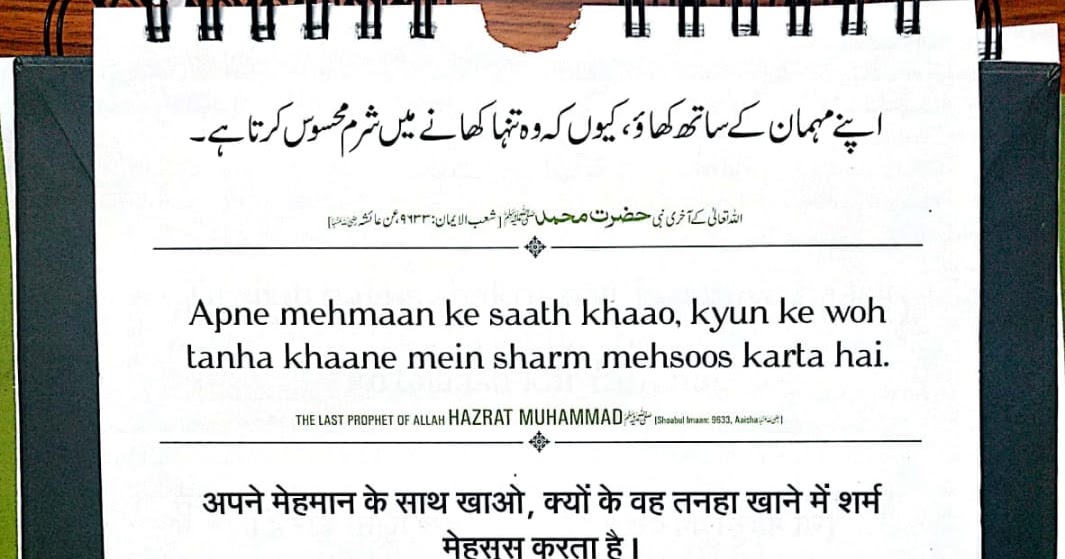 اپنے مہمان کے ساتھ کھاؤ، کیوں کہ وہ تنہا کھانے میں شرم محسوس کرتا ہے۔
اللہ تعالیٰ کے آخری نبی حضرت محمد ﷺ [شعب الایمان: ۹۶۳۳، عن عائشہ رضی اللہ عنہا]
Apne mehmaan ke saath khaao, kyun ke woh
tanha khaane mein sharm mehsoos karta hai.
THE LAST PROPHET OF ALLAH HAZRAT MUHAMMAD ﷺ [Shoabul Imaan: 9633, Aaisha رضی اللہ عنہا]
अपने मेहमान के साथ खाओ, क्यों के वह तनहा खाने में शर्म
मेहसूस करता है।